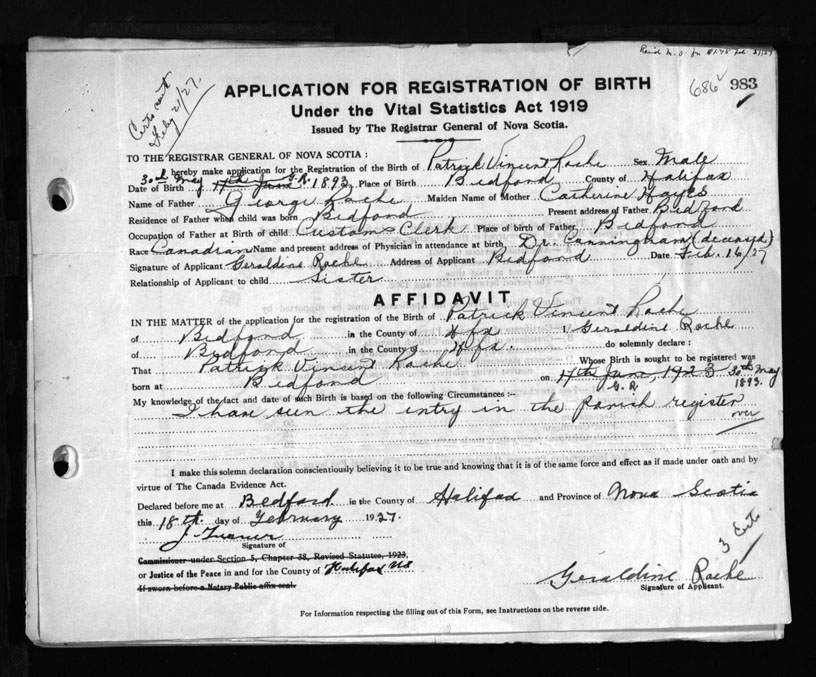 Rec'd M.O. for $1.75 Feb. 21/27
Certs sent
Feby 21/27.
686 ✓ 983
APPLICATION FOR REGISTRATION OF BIRTH
Under the Vital Statistics Act 1919
Issued by The Registrar General of Nova Scotia.
TO THE REGISTRAR GENERAL OF NOVA SCOTIA :
I hereby make application for the Registration of the Birth of Patrick Vincent Roche Sex Male
Date of Birth 30th May 17th June G.R. 1893 Place of Birth Bedford County of Halifax
Name of Father George Roche Maiden Name of Mother Catherine Hayes
Residence of Father when child was born Bidford Present address of Father Bidford
Occupation of Father at Birth of child Customs Clerk Place of birth of Father, Bidford
Race Canadian Name and present address of Physician in attendance at birth, Dr. Cunningham (deceased)
Signature of Applicant Geraldine Roche Address of Applicant Bidford Date Feb. 16/27
Relationship of Applicant to child Sister
AFFIDAVIT
IN THE MATTER of the application for the registration of the Birth of Patrick Vincent Roche
of Bidford in the County of Hfx I, Geraldine Roche
of Bidford in the County of Hfx. do solemnly declare :
That Patrick Vincent Roche Whose Birth is sought to be registered was
born at Bidford on 17th June, 1923 30th May
G.R. 1893.
My knowledge of the fact and date of such Birth is based on the following Circumstances :—
I have seen the entry in the parish register
over
I make this solemn declaration conscientiously believing it to be true and knowing that it is of the same force and effect as if made under oath and by
virtue of The Canada Evidence Act.
Declared before me at Bedford in the County of Halifax and Province of Nova Scotia
this 18th day of February 1927.
3 Certs
Signature of
Commissioner under Section 5, Chapter 38, Revised Statutes, 1923,
or Justice of the Peace in and for the County of Halifax NS
If sworn before a Notary Public affix seal.
Geraldine Roche
Signature of Applicant.
For Information respecting the filling out of this Form, see Instructions on the reverse side.